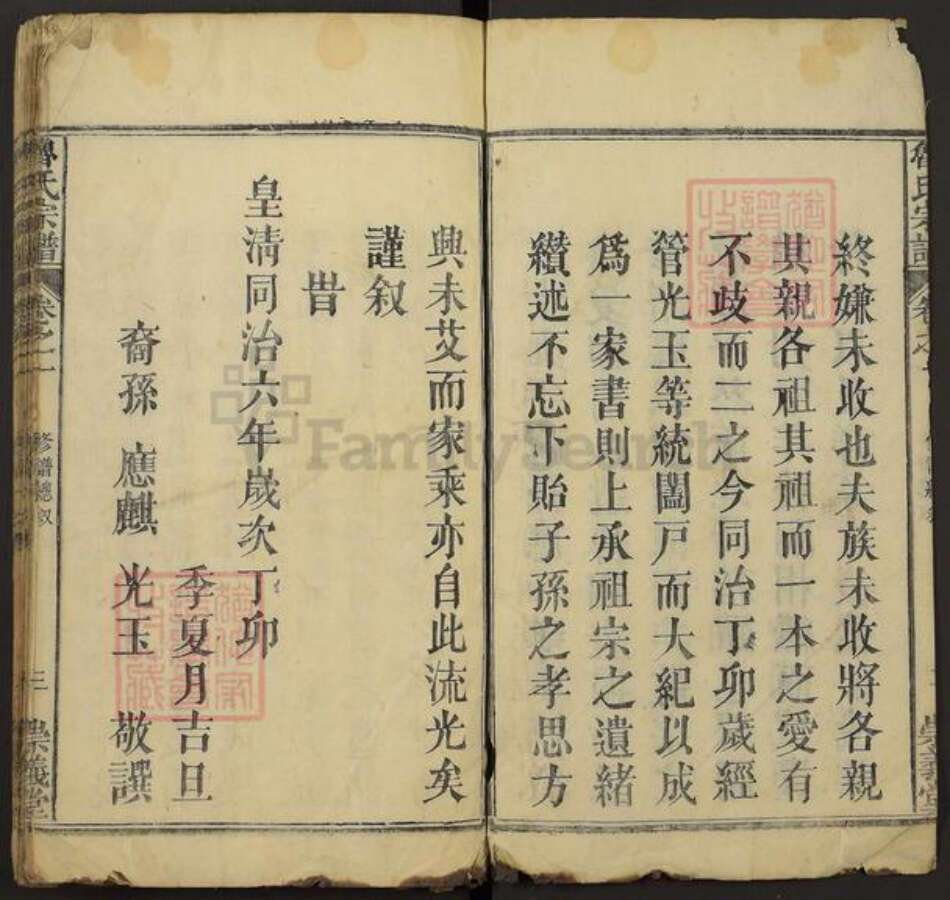 終嫌未收也夫族未收將各親
其親各祖其祖而一本之愛有
不歧而二之今同治丁卯歲經
管光玉等統闔戸而大紀以成
爲一家書則上承祖宗之遺緒
纘述不忘下貽子孫之孝思方
興未艾而家乘亦自此流光矣
謹叙
旹
皇淸同治六年歲次丁卯
季夏月吉旦
裔孫 應麒 光玉 敬譔
魯氏宗譜 卷之一 修譜總叙 三 崇義堂
FamilySearch